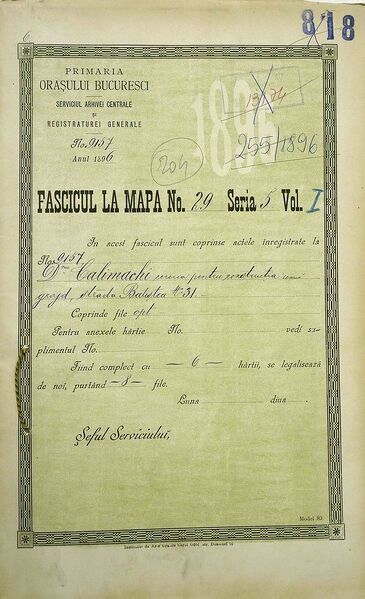 6
8/18
PRIMARIA
ORAȘULUI BUCURESCI
SERVICIUL ARHIVEI CENTRALE
și
REGISTRATUREI GENERALE
No. 9157
Anul 1896
189
13174
255/1896
204
FASCICUL LA MAPA No. 29 Seria 5 Vol. I
In acest fascicul sunt coprinse actele înregistrate la
No. 9157
Calimachi cerere pentru construcția unui
grajd, strada Batistea No 31
Coprinde file opt
Pentru anexele hârtie No. vedi su-
plimentul No.
Fiind complect cu — 6 — hârtii, se legalisează
de noi, purtând — 8 — file.
Luna diua
Șeful Serviciului,
Model 80